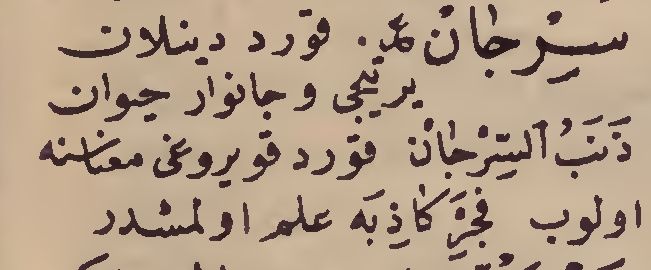 سِرْحَانْ عر. قورد دينلان
يرتيجى و جانوار حيوان
ذَنَبُ السِّرْحَانْ قورد قويروغى معناسنه
اولوب فَجْرِ كَاذِبَه علم اولمشدر